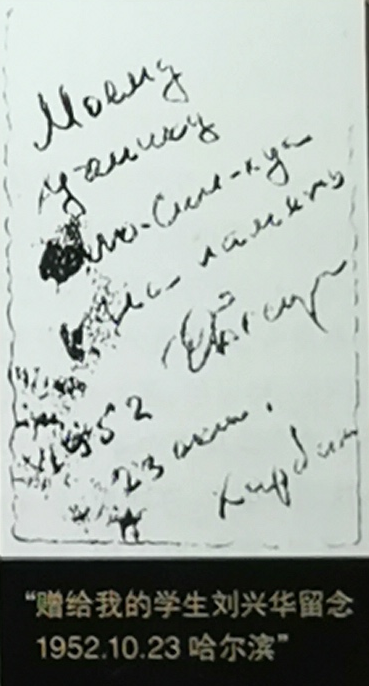 Моему
ученику
Лю-Син-хуа
на память
1952
23 окт.
Харбин
“赠给我的学生刘兴华留念
1952.10.23 哈尔滨”